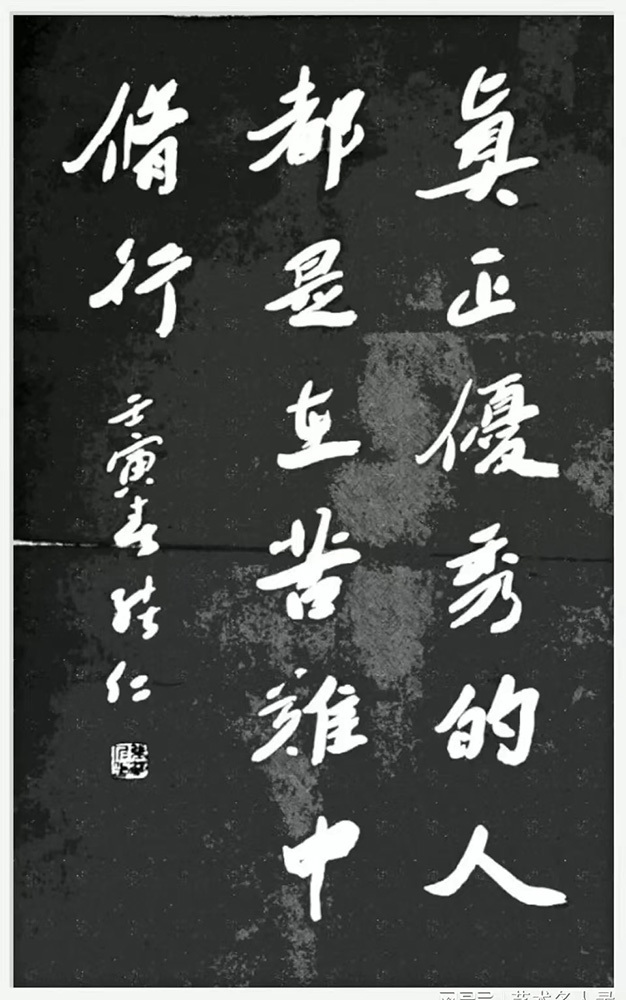 真正優秀的人
都是在苦難中
脩行
壬寅春
仁